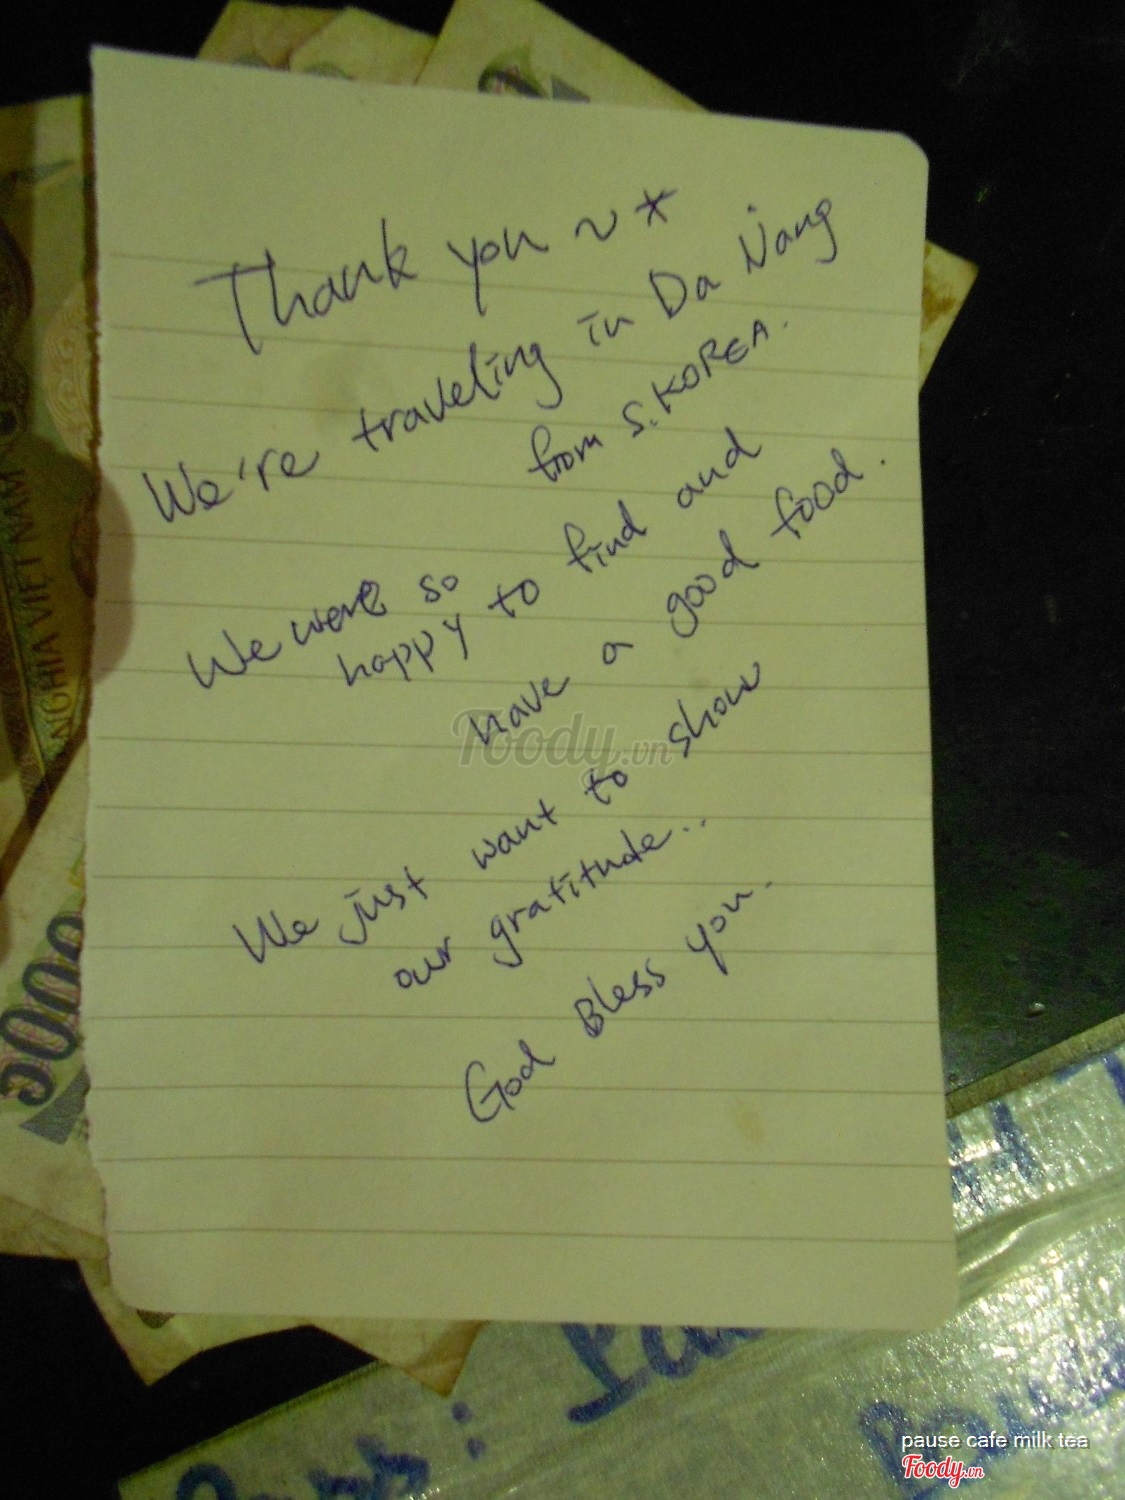 Thank you ~ *
We're traveling in Da Nang
from S.KOREA.
We were so
happy to find and
have a good food.
We just want to show
our gratitude..
God Bless you.
NGHĨA VIỆT NAM
5000
Foody.vn
pause cafe milk tea
Foody.vn